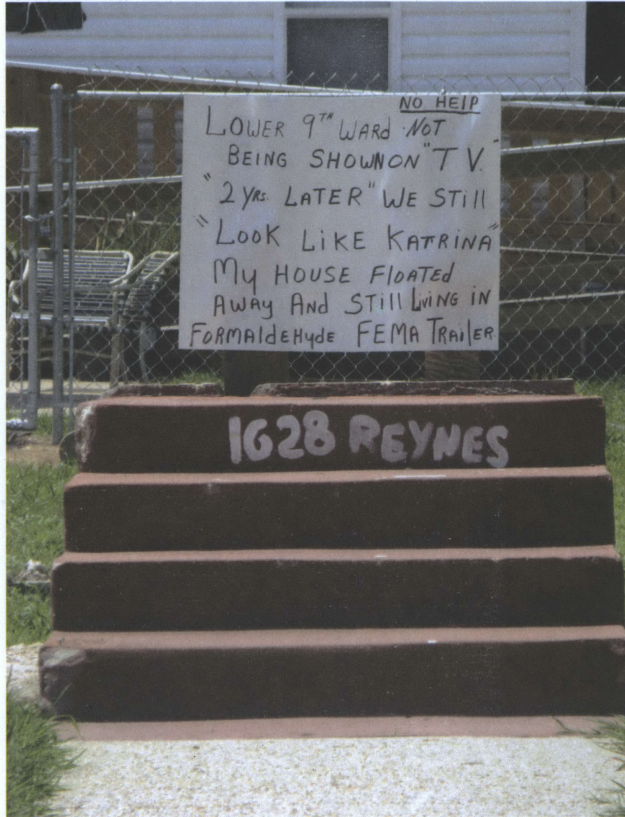 NO HELP
LOWER 9TH WARD NOT
BEING SHOWN ON "T V."
"2 YRS. LATER" WE STILL
"LOOK LIKE KATRINA"
MY HOUSE FLOATED
AWAY AND STILL LIVING IN
FORMALDEHYDE FEMA TRAILER
1628 REYNES